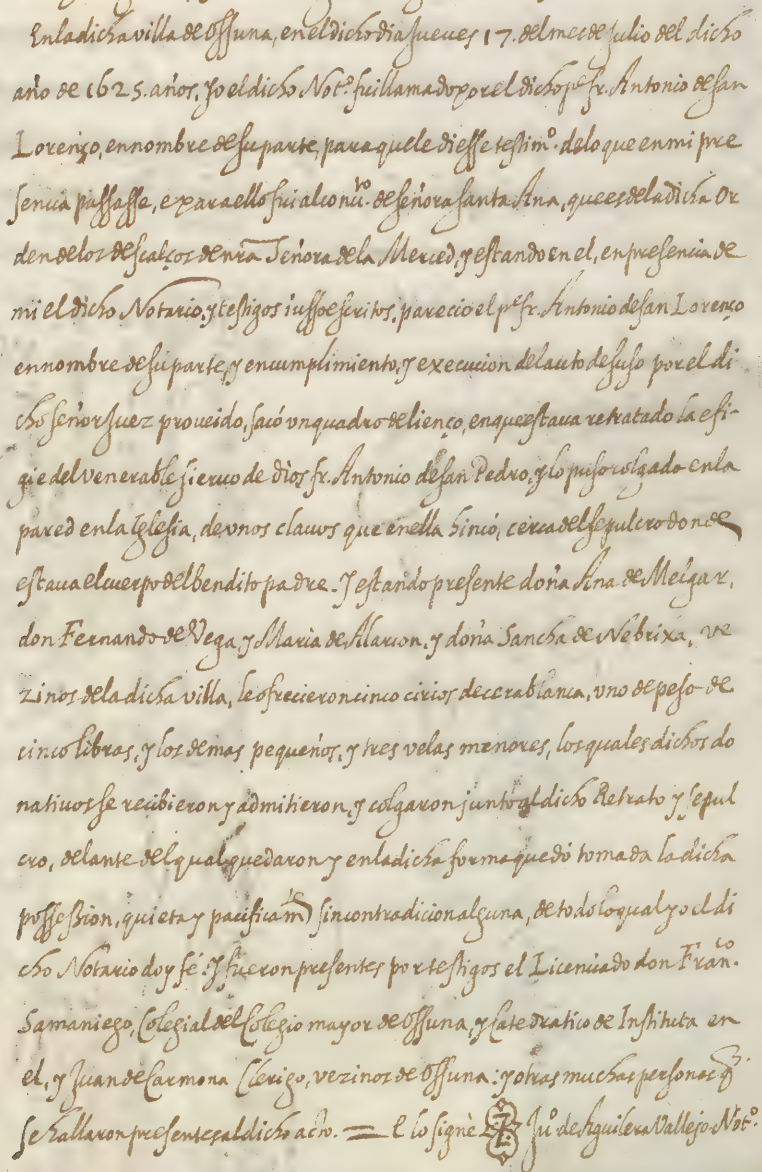 En la dicha villa de Ossuna, en el dicho dia Jueves 17. del mes de Julio del dicho
año de 1625. años, yo el dicho Not.º fui llamado por el dicho p.e fr. Antonio de san
Lorenço, en nombre de su parte, para que le diesse testim.º de lo que en mi pre
sencia passasse, e para ello fui al conu.to de señora santa Ana, que es de la dicha Or
den de los descalços de nra Señora de la Merced, y estando en el, en presencia de
mi el dicho Notario, y testigos iusso escritos, parecio el p.e fr. Antonio de san Lorenço
en nombre de su parte, y en cumplimiento, y execucion del auto de suso por el di
cho señor Juez proueido, sacó vn quadro de lienço, en que estaua retratado la efi-
gie del venerable sieruo de Dios fr. Antonio de san Pedro, y lo puso colgado en la
pared en la Iglesia, de vnos clauos que en ella hincó, cerca del sepulcro donde
estaua el cuerpo del bendito padre. Y estando presente doña Ana de Melgar,
don Fernando de Vega, y Maria de Alarcon, y doña Sancha de Nebrixa, ve
zinos de la dicha villa, le ofrecieron cinco cirios de cera blanca, vno de peso de
cinco libras, y los demas pequeños, y tres velas menores, los quales dichos do
natiuos se recibieron y admitieron, y colgaron junto al dicho Retrato y sepul
cro, delante del qual quedaron y en la dicha forma quedó tomada la dicha
possession, quieta y pacificam.te sin contradicion alguna, de todo lo qual yo el di
cho Notario doy fé. Y fueron presentes por testigos el Licenciado don Fran.co
Samaniego, Colegial del Colegio mayor de Ossuna, y Catedratico de Instituta en
el, y Juan de Carmona Clerigo, vezinos de Ossuna: y otras muchas personas q̃
se hallaron presentes al dicho acto. = E lo signè Ju.º de Aguilera Vallejo Not.º